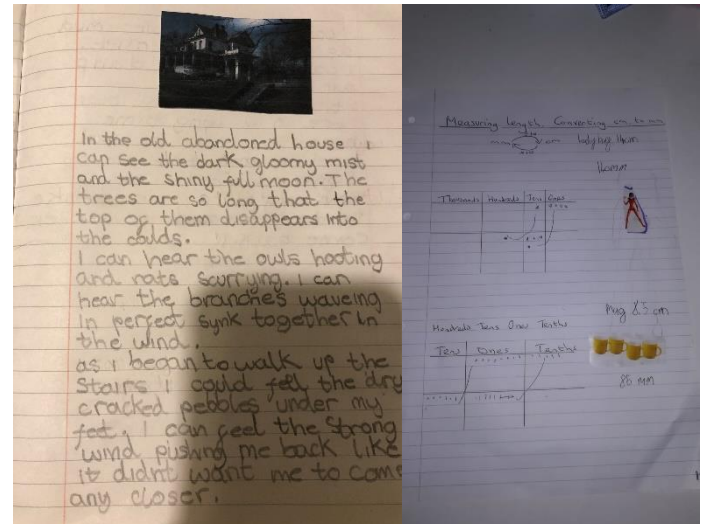 In the old abandoned house i
can see the dark gloomy mist
and the shiny full moon. The
trees are so long that the
top of them disappears into
the coulds.
I can hear the owls hooting
and rats scurrying. I can
hear the branches waveing
in perfect synk together in
the wind.
as i began to walk up the
Stairs i could feel the dry
cracked pebbles under my
feet. I can feel the strong
wind pushing me back like
it didnt want me to come
any closer.
Measuring length Converting cm to mm
ladybug
Thousands Hundreds Tens Ones
Mug 8.5 cm
Hundreds Tens Ones Tenths
Tens Ones Tenths
85 mm